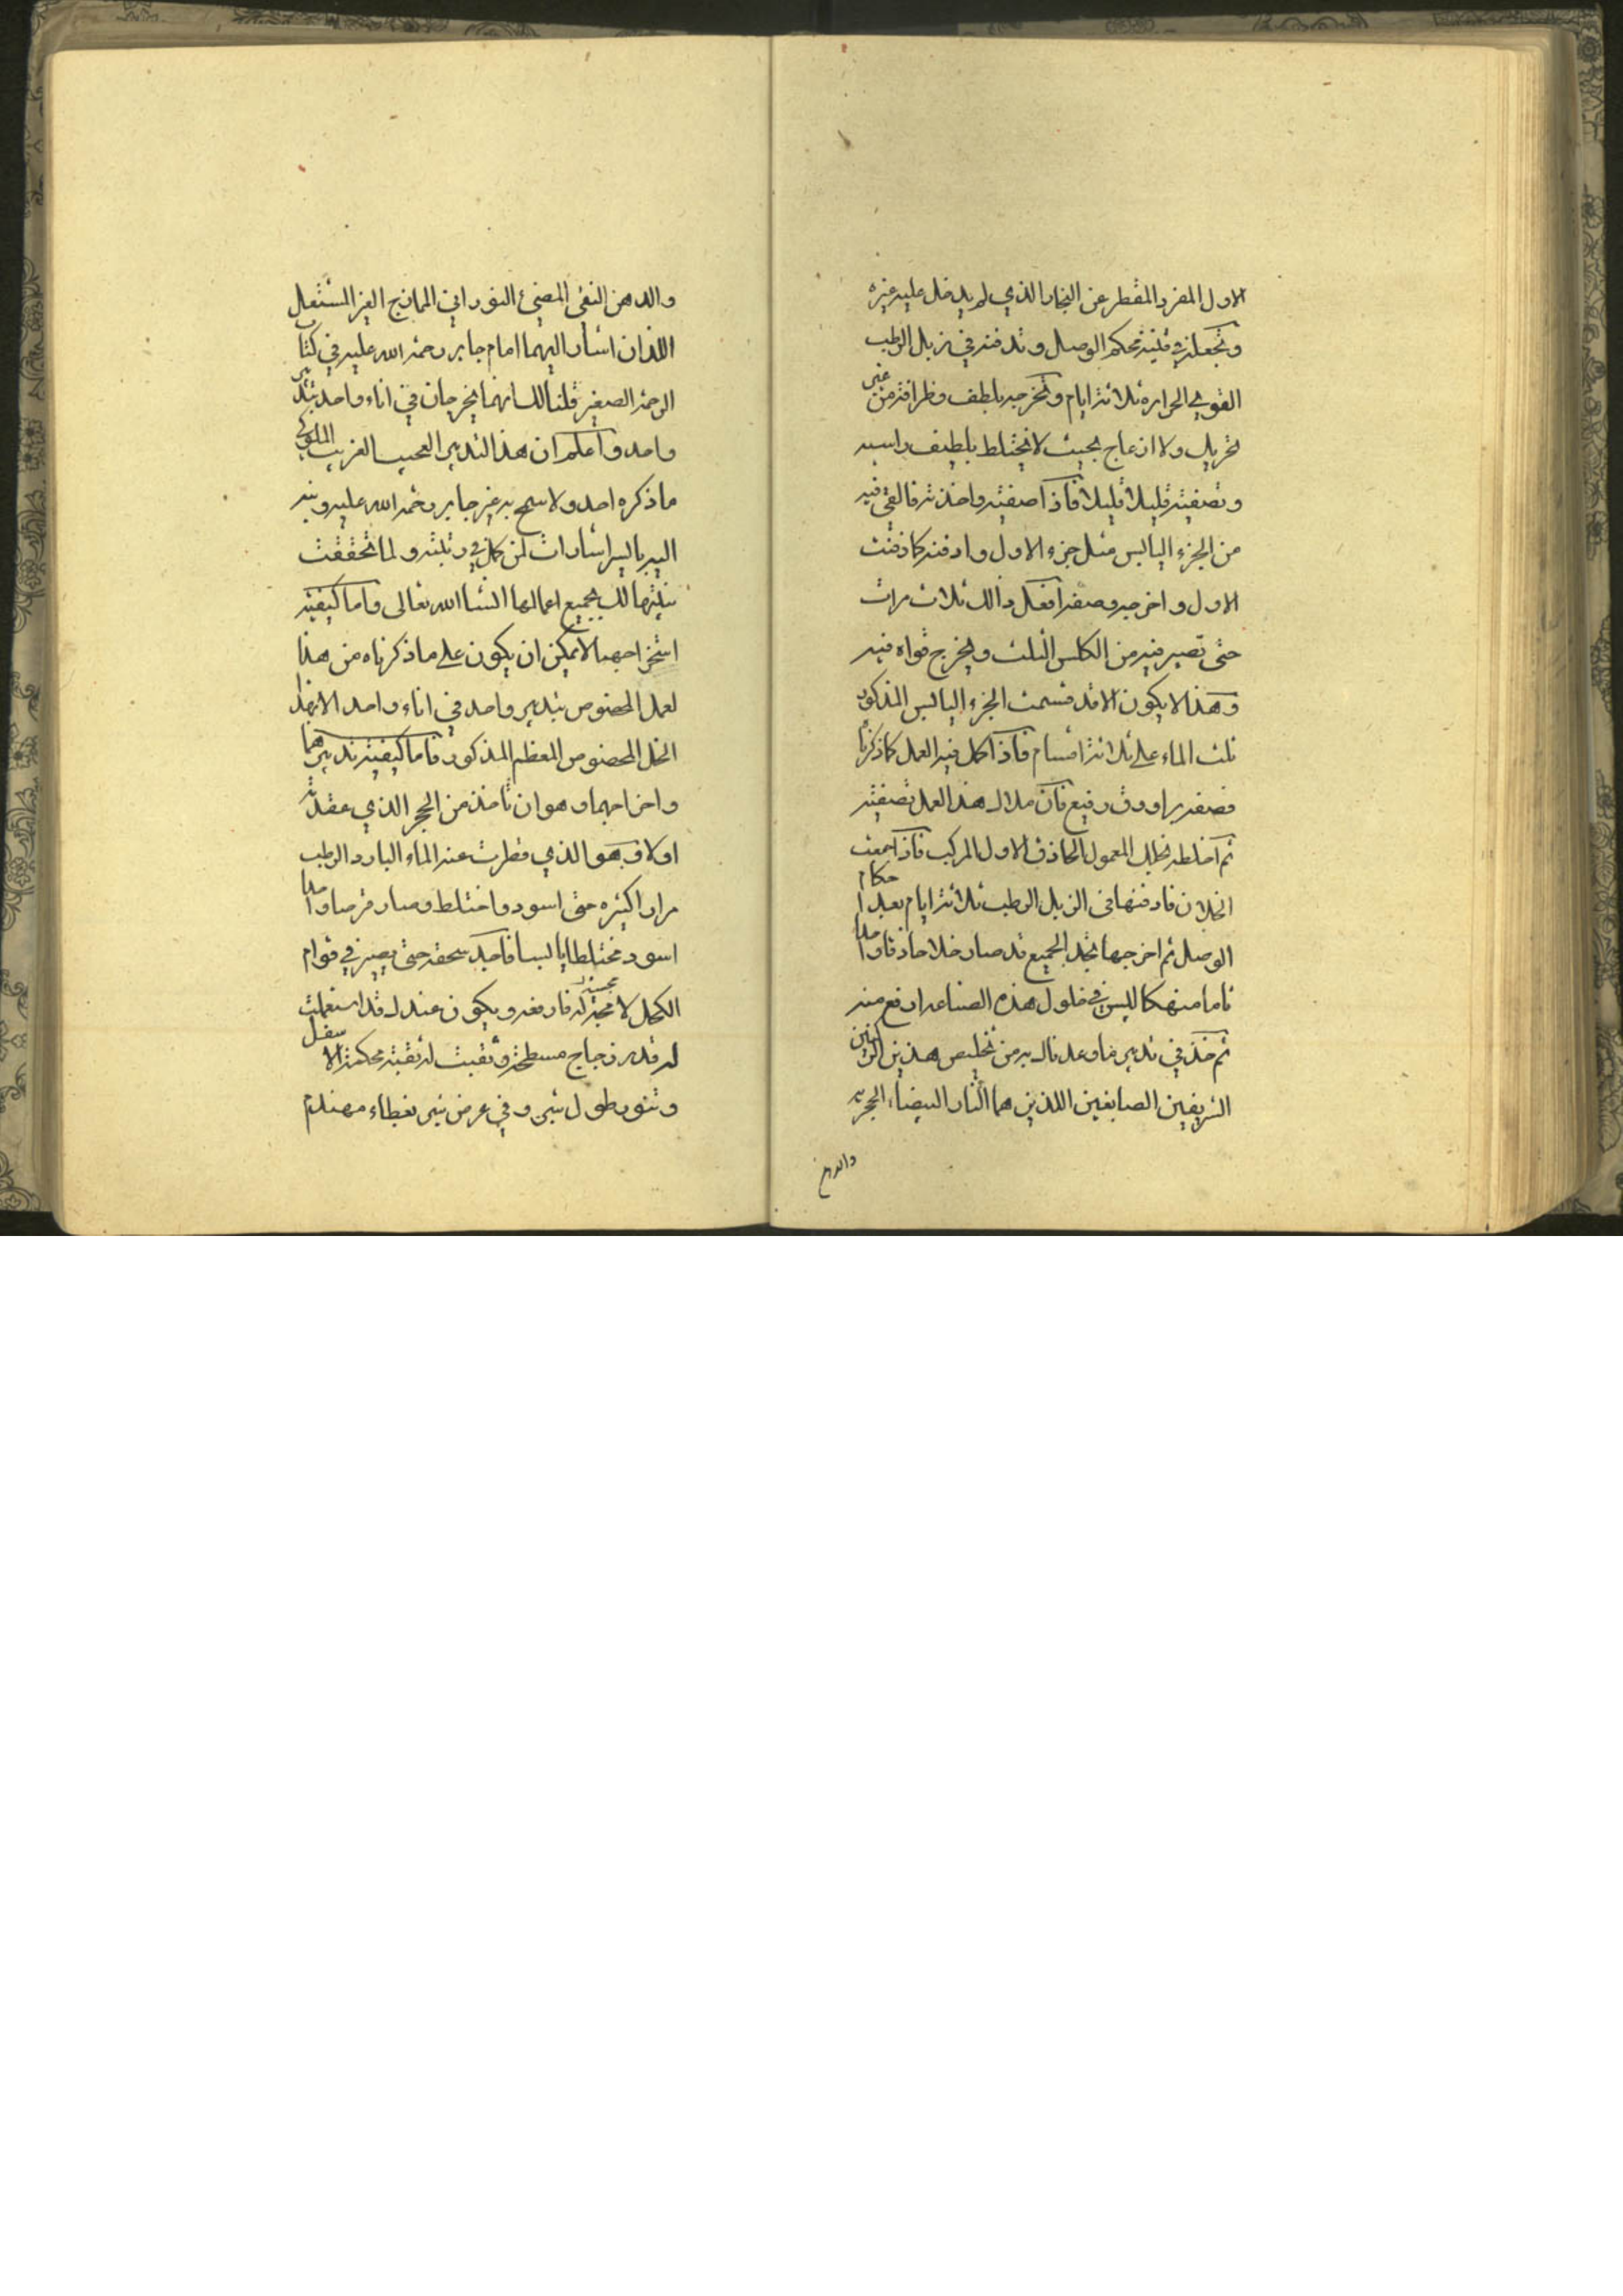 الاول المفرد المقطر عن البخار الذي لم يدخل عليه غيره
وتجعله في قنينه محكم الوصل وتدفنه في زبل الرطب
القوي الحراره ثلاثة ايام وتخرجه بلطف وظرافة من غير
تحريك ولا انزعاج بحيث لا يختلط بلطيف راسبه
وتصفيته قليلا قليلا فاذا صفيته واخذته فالقي فيه
من الجزء اليابس مثل جزء الاول وادفنه كما دفنت
الاول واخرجه وصفه افعل ذالك ثلاث مرات
حتى تصير فيه من الكلس الثلث ويخرج قواه فيه
وهذا لا يكون الا قد قسمت الجزء اليابس المذكور
ثلث الماء على ثلاثة اقسام فاذا كمل فيه العمل كما ذكرنا
فصفه براووق رفيع فان ملاك هذا العمل تصفيته
ثم اخلطه بخلك المعمول الحاذق الاول المركب فاذا جمعت
الخلان فادفنها في الزبل الرطب ثلاثة ايام بعد احكام
الوصل ثم اخرجها تجد الجميع قد صار خلا حاذقا واحدا
تاما منهكا ليس في خلول هذه الصناعه ارفع منه
ثم خذ في تدبير ما وعدناك به من تخليص هذين الركنين
الشريفين الصابغين اللذين هما النار البيضاء الحجريه
والدهن
والدهن النقي المضيئ النوراني الممازج الغير المشتعل
اللذان اشار اليهما امام جابر رحمة الله عليه في كتاب
الرحمة الصغير قلنا لك انهما يخرجان في اناء واحد بتدبير
واحد واعلم ان هذا التدبير العجيب الغريب الملوكي
ما ذكره احد ولا سمح به غير جابر رحمة الله عليه وبنه
اليه باليسر اشارات لمن كان في رتبته ولما تحققت
بينتها لك بجميع اعمالها انشا الله تعالى واما كيفيته
استخراجهما لا يمكن ان يكون على ما ذكرناه من هذا
لعمل المخصوص بتدبير واحد في اناء واحد الا بهذا
الخل المخصوص المعظم المذكور فاما كيفيته تدبيرهما
واخراجهما وهو ان تاخذ من الحجر الذي عقدته
اولا وهو الذي قطرت عنه الماء البارد الرطب
مرارا كثيره حتى اسود واختلط وصار قرصا واحدا
اسود مختلطا يابسا فاجد سحقه حتى يصير في قوام
الكحل لا محسته له فارفعه ويكون عندك قد استعملت
له قدر زجاج مسطحة وثقبت له ثقبته محكمة الاسفل
وتنور طول شبر وفي عرض شبر بغطاء مهندم